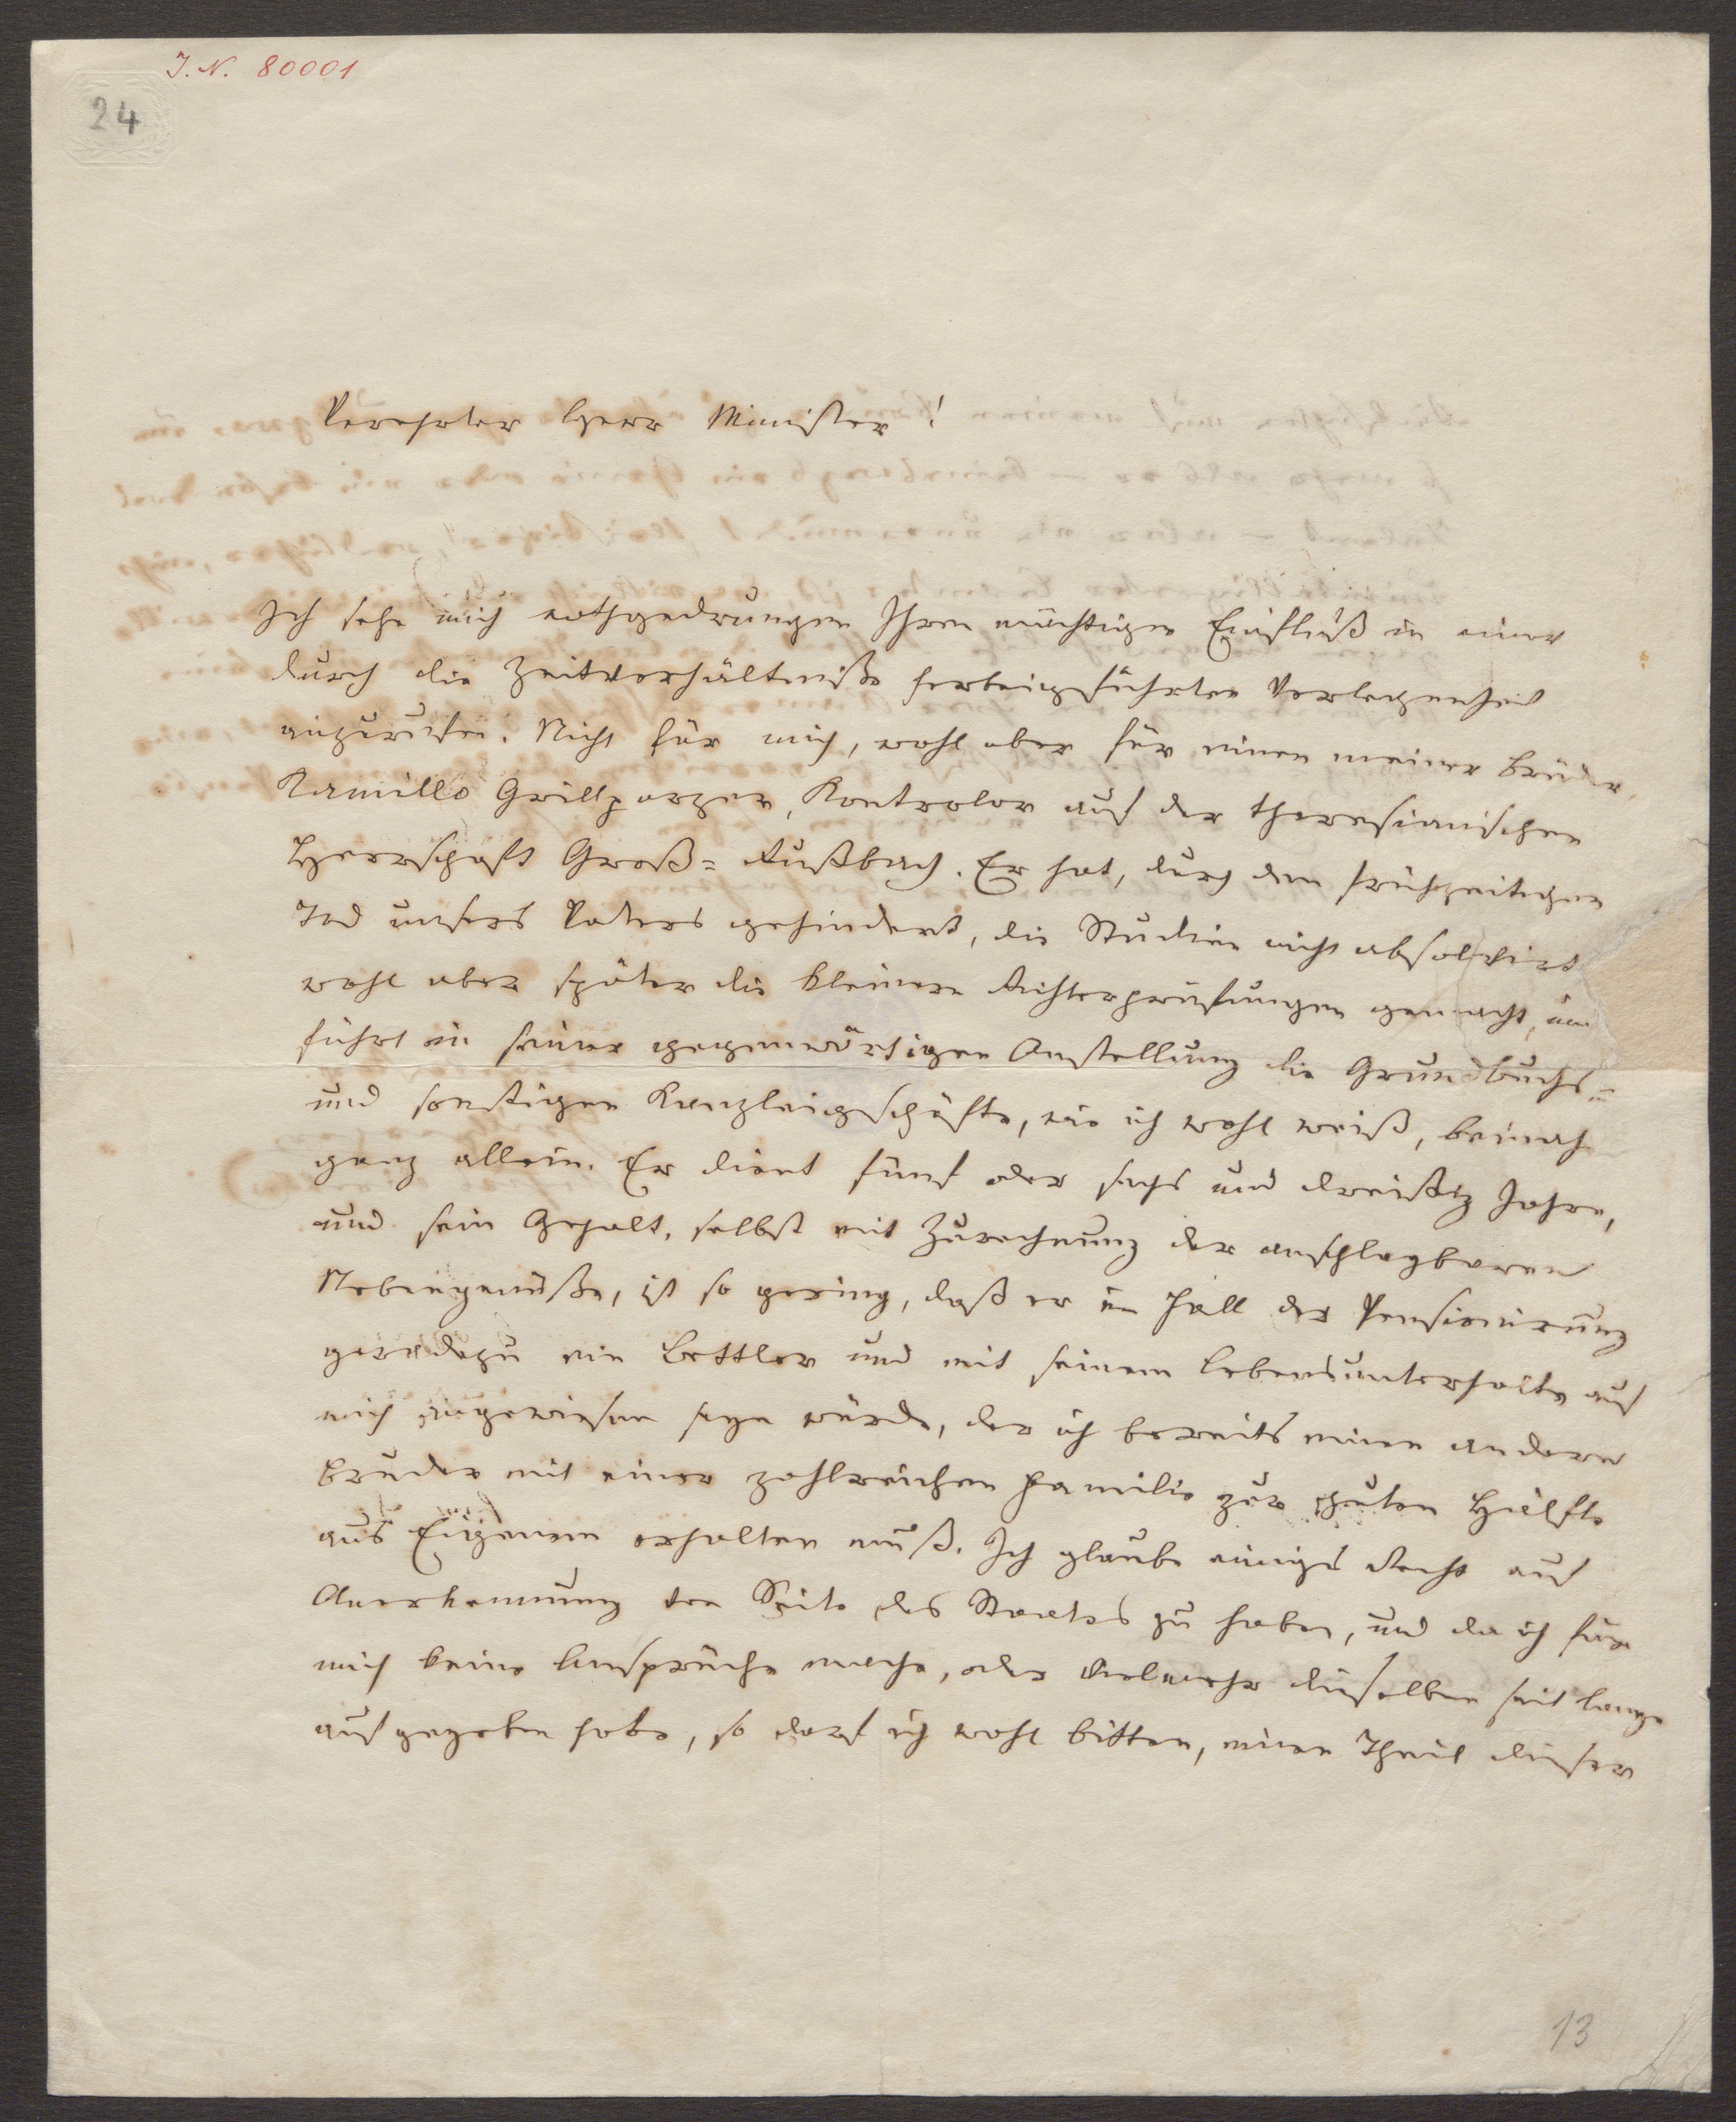 J. N. 80001
24
Verehrter Herr Minister!
Ich sehe mich nothgedrungen Ihren mächtigen Einfluß in einer
durch die Zeitverhältniße herbeigeführten Verlegenheit
anzurufen. Nicht für mich, wohl aber für einen meiner Brüder,
Kamillo Grillparzer, Kontrolor auf der theresianischen
Herrschaft Groß-Rußbach. Er hat, durch den frühzeitigen
Tod unsers Vaters gehindert, die Studien nicht absolvirt
wohl aber später die kleinere Richterprüfungen gemacht, und
führt in seiner gegenwärtigen Anstellung die Grundbuchs-
und sonstigen Kanzleigeschäfte, wie ich wohl weiß, beinah
ganz allein. Er dient fünf oder sechs und dreißig Jahre,
und sein Gehalt, selbst mit Zurechnung der anschlagbaren
Nebengenüße, ist so gering, daß er im Fall der Pensionirung
geradezu ein Bettler und mit seinem Lebensunterhalte auf
mich angewiesen seyn würde, der ich bereits einen andern
Bruder mit einer zahlreichen Familie zur guten Hälfte
aus Eigenem erhalten muß. Ich glaube einiges Recht auf
Anerkennung von Seite des Staates zu haben, und da ich für
mich keine Ansprüche mache, oder vielmehr dieselben seit lange
aufgegeben habe, so darf ich wohl bitten, einen Theil dieser
13